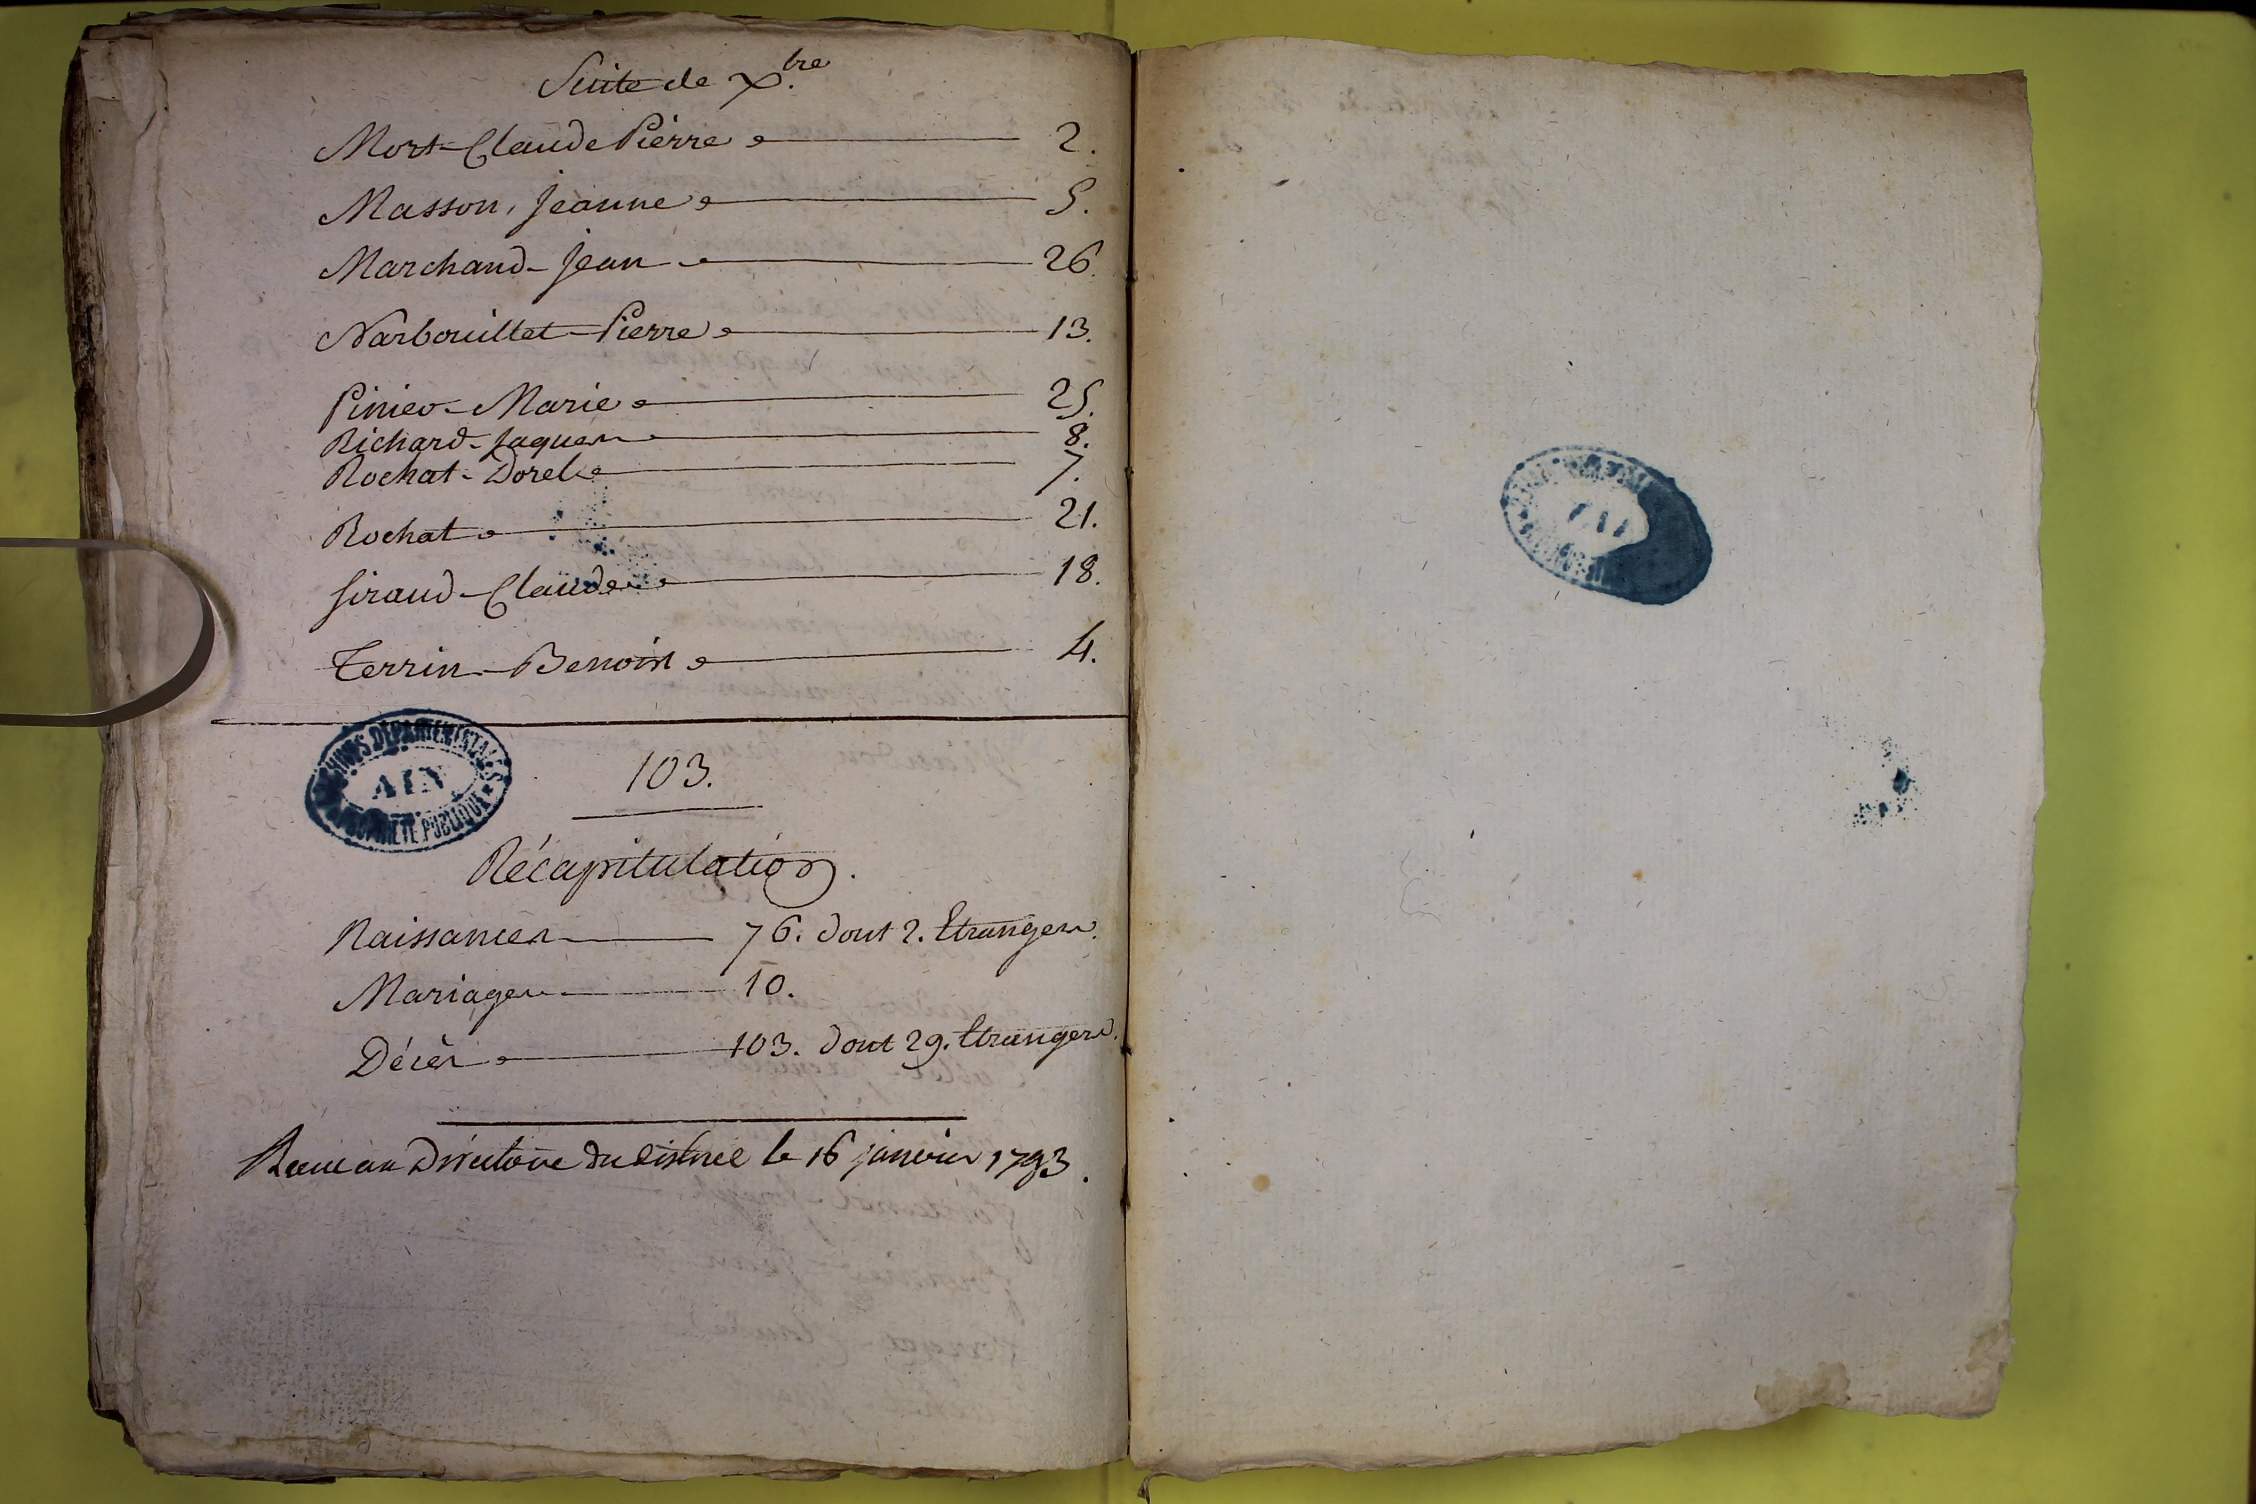 Suite de Xbre.
Mort Claude Pierre 2.
Masson, Jeanne 5.
Marchand Jean 26.
Narbouillet Pierre 13.
Marie 25.
Richard Jaques 8.
Rochat Dorel 7.
Rochat 21.
Siraud Claude 18.
Terrin Benoit 4.
ARCHIVES DÉPARTEMENTALES
AIN
PROPRIÉTÉ PUBLIQUE
103.
Récapitulation.
Naissances 76. dont 2. Etrangers.
Mariages 10.
Décès 103. dont 29. Etrangers.
Receu au Directoire du district le 16 janvier 1793.